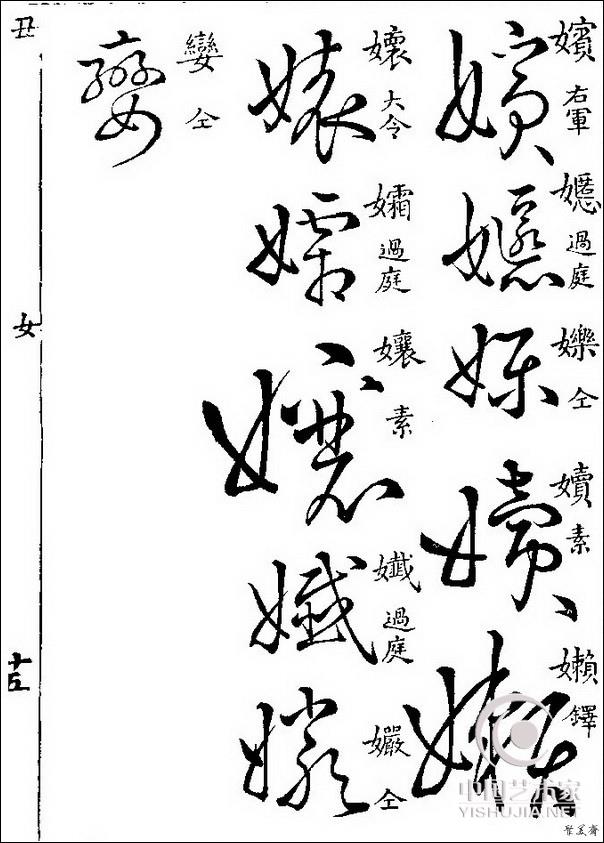 嬪 右軍
嬺 過庭
嬫 仝
嬻 素
嬾 鐸
孃 大令
孀 過庭
孃 素
孅 過庭
孍 仝
孌 仝
丑
女
十五
中国艺术家
YISHUJIA.NET